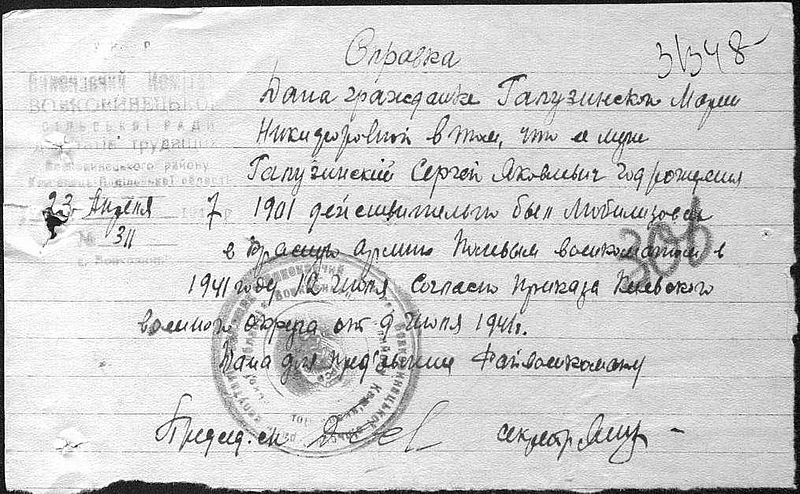 Справка
31348
Виконавчий Комітет
ВОВКОВИНЕЦЬКОЇ
СІЛЬСЬКОЇ РАДИ
депутатів трудящих
Вовковинецького району
Кам'янець-Подільської області
23 Апреля 7
№ 311
Дана гражданке Галузинской Марии
Никифоровной в том, что ее муж
Галузинский Сергей Яковлевич год рождения
1901 действительно был мобилизован
в красную армию военкоматом в
1941 году 12 июля Согласно приказа Киевского
военного округа от 9 июля 1941г.
Дана для предъявления Райвоенкомату
308
Председ. с/с секретр